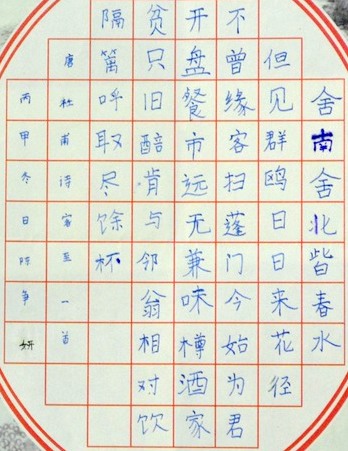 舍南舍北皆春水
但见群鸥日日来花径
不曾缘客扫蓬门今始为君
开盘餐市远无兼味樽酒家
贫只旧醅肯与邻翁相对饮
隔篱呼取尽馀杯
唐杜甫诗客至一首
丙甲冬日陈争妍